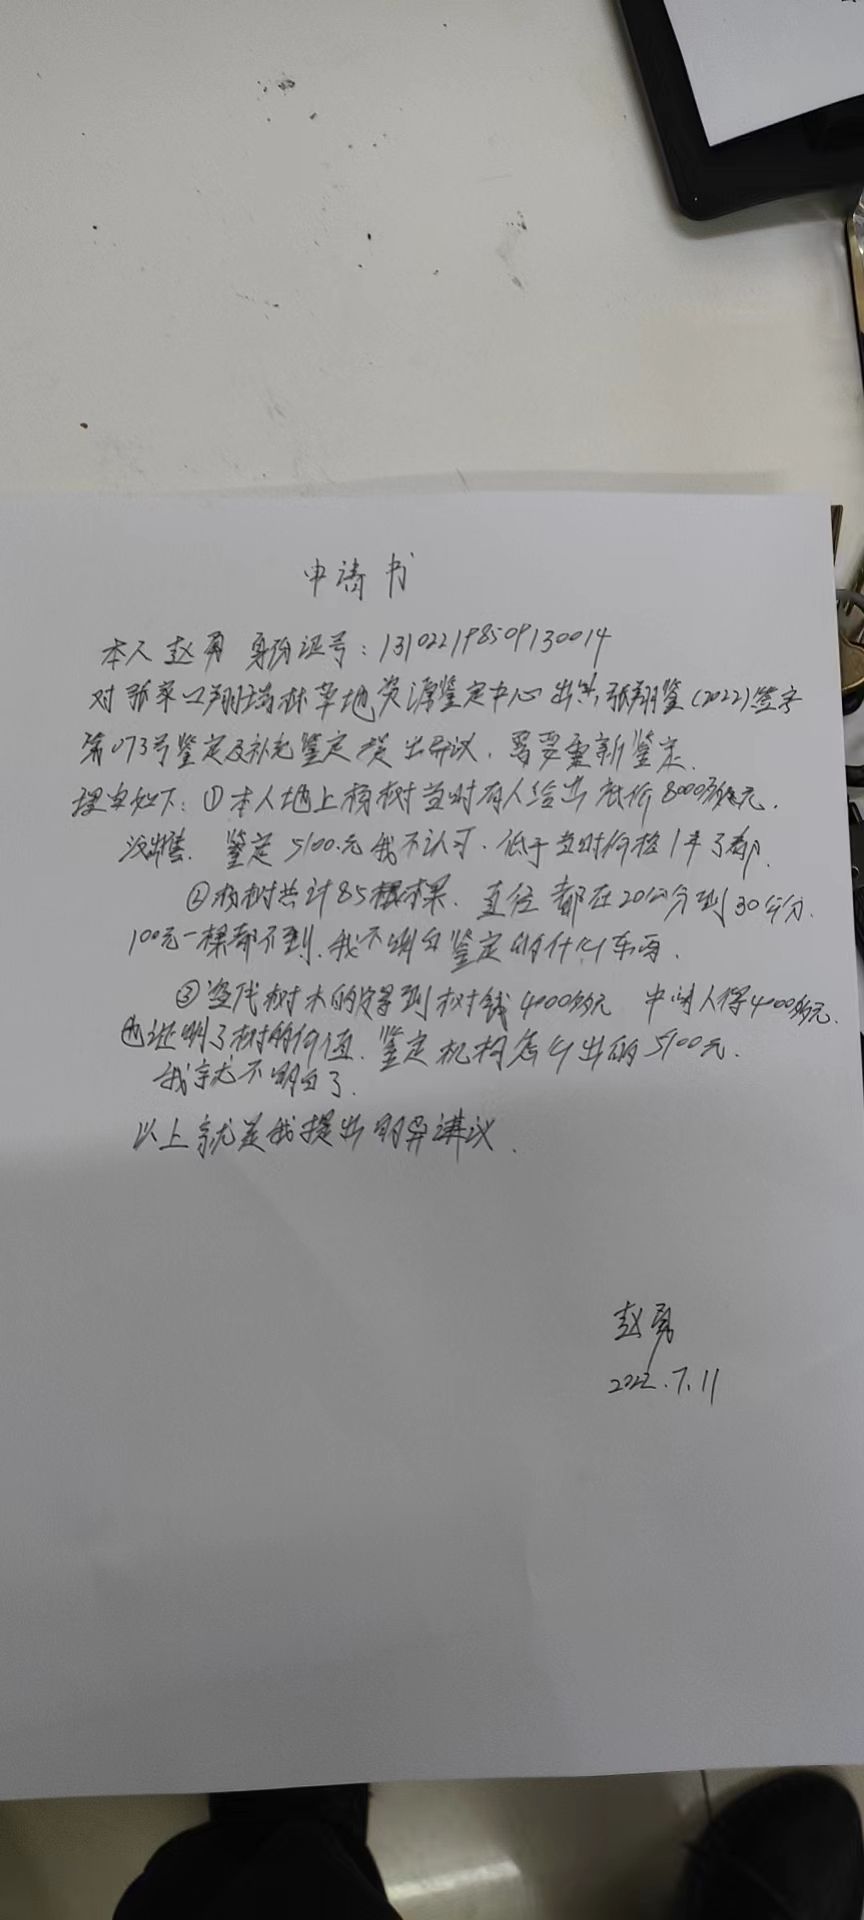 申请书
本人赵勇 身份证号：131022198509130014
对张家口翔瑞林草地资源鉴定中心出具,张翔鉴(2022)鉴字
第073号鉴定及补充鉴定提出异议.需要重新鉴定.
理由如下：①本人地上杨树当时有人给出底价8000多元.
没出售. 鉴定5100元我不认可.低于当时价格1半了都.
②杨树共计85棵. 直径都在20公分到30公分.
100元一棵都不到.我不明白鉴定的什么东西.
③盗伐树木的得到树钱4000多元 中间人得4000多元.
也证明了树的价值.鉴定机构怎么出的5100元.
我就不明白了.
以上就是我提出的异议.
赵勇
2022.7.11